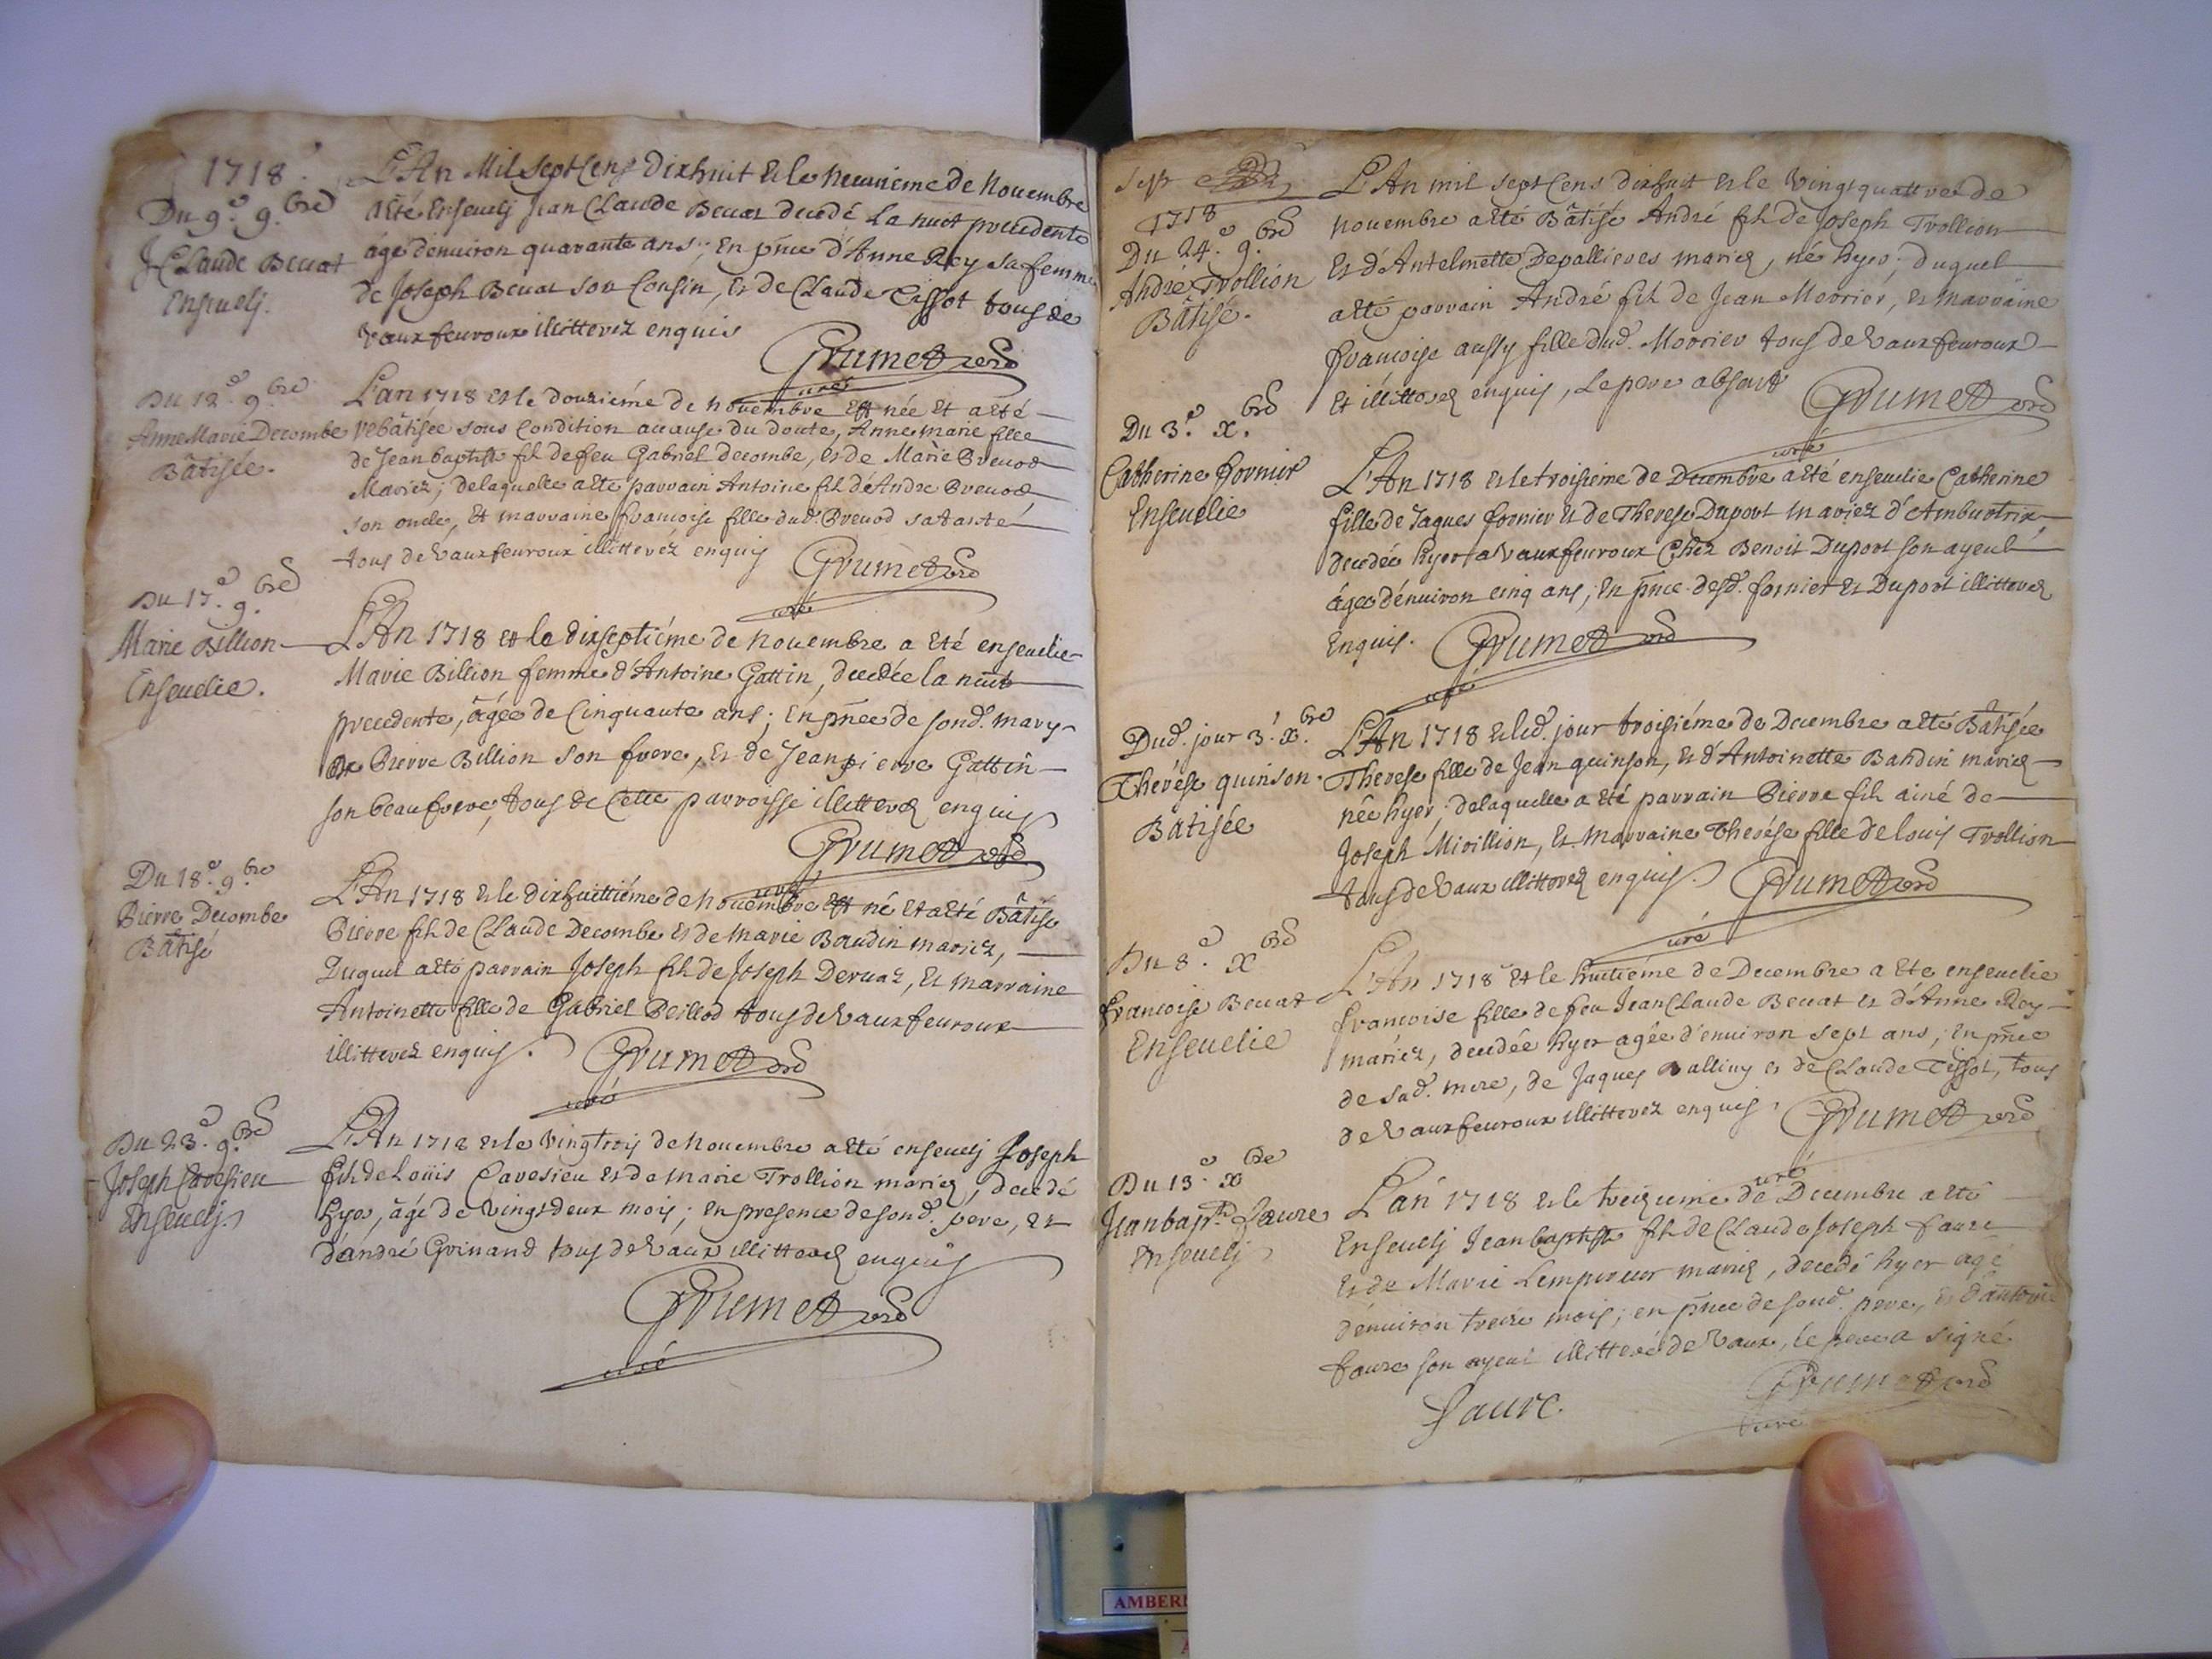 1718.
Du 9.e 9.bre
J Claude Beuat
Enseuelj.
L'An Mil Sept Cens dixhuit Et le neuuieme de Nouembre
a Eté Enseuelj Jean Claude Beuat decedé la nuit precedente
agé d'enuiron quarante ans; En pñce d'Anne Rey sa femme
de Joseph Beuat son Cousin, Et de Claude Tissot tous de
Vaux feuroux illitterez enquis
Grumet
curé
Du 12.e 9.bre
Anne Marie Decombe
Bâtisée.
L'an 1718 Et le douzieme de nouembre Est née Et a eté
rebâtisée sous Condition a cause du doute, Anne marie fille
de Jean baptiste fil de feu Gabriel decombe, Et de Marie Breuod
Mariez; de laquelle a ete parrain Antoine fil d'André Breuod
son oncle, Et marraine francoise fille dud. Breuod sa tante
tous de Vauxfeuroux illitterez enquis
Grumet
curé
Du 17.e 9.bre
Marie Billion
Enseuelie.
L'An 1718 Et le dixseptiéme de nouembre a Eté enseuelie
Marie Billion femme d'Antoine Gattin, decedée la nuit
precedente, âgée de Cinquante ans; En pñce de sond. mary
de Pierre Billion son frere, Et de Jeanpierre Gattin
son beaufrere, tous de Cette parroisse illitterez enquis
Grumet
curé
Du 18.e 9.bre
Pierre Decombe
Bâtisé
L'An 1718 Et le dixhuittiéme de nouembre Est né Et a Eté Bâtisé
Pierre fil de Claude Decombe Et de marie Baudin mariez,
Duquel a eté parrain Joseph fil de Joseph Deruaz, Et marraine
Antoinette fille de Gabriel Peillod tous de Vauxfeuroux
illitterez enquis.
Grumet
curé
Du 23.e 9.bre
Joseph Cavesieu
Enseuelj
L'An 1718 Et le Vingtrois de Nouembre a eté enseuelj Joseph
fil de Loüis Cavesieu Et de marie Trollion mariez, decedé
hyer, âgé de Vingtdeux mois; En presence de sond. pere, Et
d'andré Grinand tous de Vaux illitterez enquis
Grumet
curé
sept
1718
Du 24.e 9.bre
André Trollion
Bâtisé.
L'An mil sept Cens dixhuit Et le Vingtquattre de
nouembre a eté Bâtisé André fil de Joseph Trollion
Et d'Antelmette Depallieres mariez, né hyer; duquel
a eté parrain André fil de Jean Morrier, Et marraine
francoise aussy fille dud. Morrier tous de Vauxfeuroux
Et illitterez enquis, le pere absent
Grumet
curé
Du 3.e x.bre
Catherine fornier
Enseuelie
L'An 1718 Et le troisieme de Decembre a eté enseuelie Catherine
fille de Jaques fornier Et de Therese Duport mariez d'Ambutrix,
decedée hyer a Vauxfeuroux Chez Benoit Duport son ayeul
âgée d'enuiron cinq ans; En pñce desd. fornier Et Duport illitterez
Enquis.
Grumet
curé
Dud. jour 3.e x.bre
Therése quinson.
Bâtisée
L'An 1718 Et led. jour troisiéme de Decembre a eté Bâtisée
Therese fille de Jean quinson, Et d'Antoinette Baudin mariez
née hyer; de laquelle a eté parrain Pierre fil ainé de
Joseph Mirillion, Et marraine Therése fille de louis Trollion
tous de Vaux illitterez enquis.
Grumet
curé
Du 8.e X.bre
francoise Beuat
Enseuelie
L'An 1718 Et le huitiéme de Decembre a Ete enseuelie
francoise fille de feu Jean Claude Beuat Et d'Anne Rey
mariez, decedée hyer agée d'enuiron sept ans; En pñce
de sad. mere, de Jaques Et de Claude Tissot, tous
de Vauxfeuroux illitterez enquis.
Grumet
curé
Du 13.e x.bre
Jeanbap.te faure
Enseuelj
L'an 1718 Et le treizieme de Decembre a eté
Enseuelj Jeanbaptiste fil de Claude Joseph faure
Et de Marie Lempereur mariez, decedé hyer agé
d'enuiron treize mois; en pñce de sond. pere, Et d'antoine
faure son ayeul illitteré de Vaux, le pere a signé
faure.
Grumet
curé
AMBER